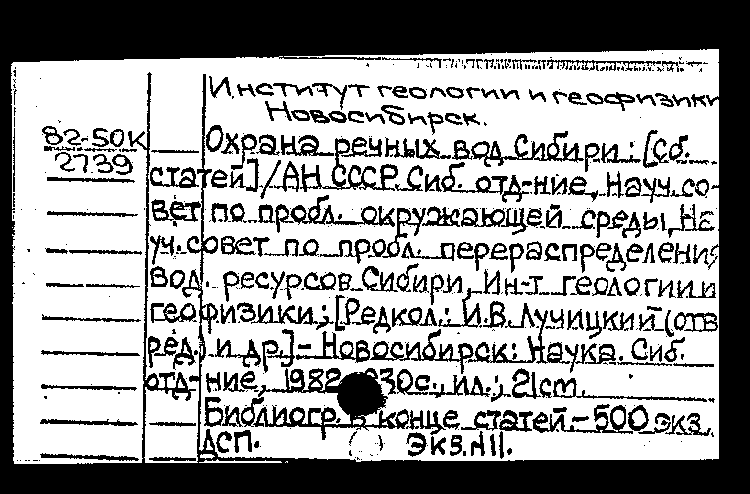 Институт геологии и геофизики
Новосибирск.
82-50К
2739
Охрана речных вод Сибири: [Сб.
статей]/АН СССР. Сиб. отд-ние, Науч. со-
вет по пробл. окружающей среды, На
уч. совет по пробл. перераспределения
вод. ресурсов Сибири, Ин-т геологии и
геофизики; [Редкол.: И.В. Лучицкий (отв
ред.) и др.].- Новосибирск: Наука. Сиб.
отд-ние, 1982 230с., ил.; 21 cm.
Библиогр. в конце статей.- 500 экз.
ДСП. Экз.N11.